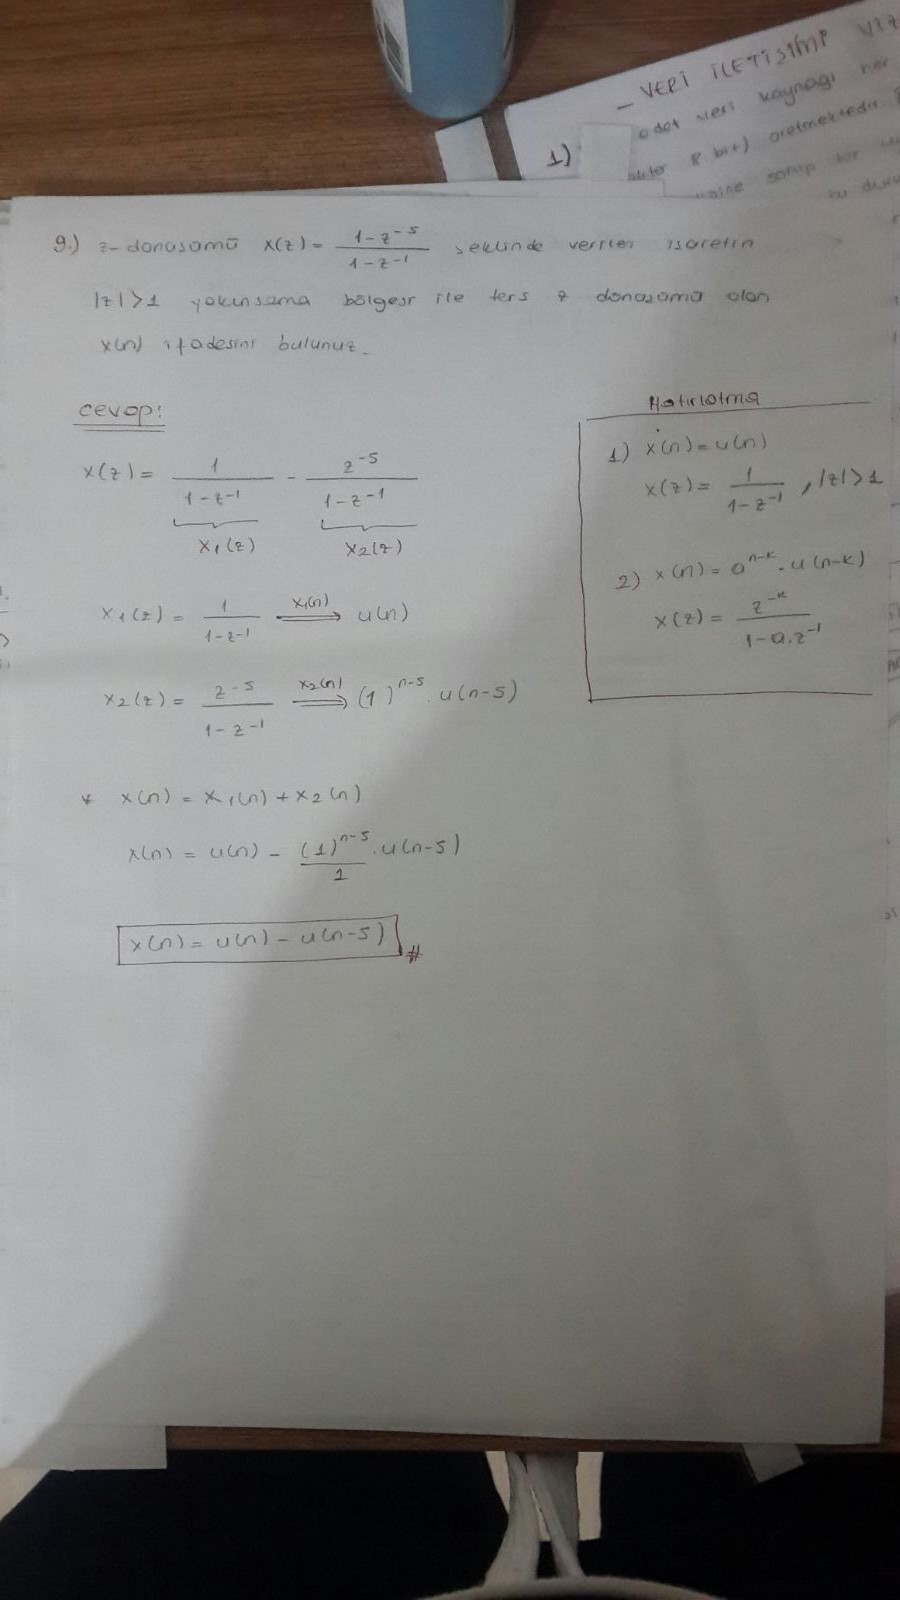 - VERİ İLETİŞİMİ VİZ
adet veri kaynağı her
1)
8 bit) üretmektedir
9.) z- dönüşümü x(z) = 1-z^-5 / 1-z^-1 şeklinde verilen işaretin
|z|>1 yakınsama bölgesi ile ters z dönüşümü olan
x(n) ifadesini bulunuz.
Cevap:
x(z) = 1 / 1-z^-1 - z^-5 / 1-z^-1
x1(z) x2(z)
x1(z) = 1 / 1-z^-1 ⟹ x1(n) u(n)
x2(z) = z^-5 / 1-z^-1 ⟹ x2(n) (1)^n-5 . u(n-5)
* x(n) = x1(n) + x2(n)
x(n) = u(n) - (1)^n-5 . u(n-5)
1
x(n) = u(n) - u(n-5) #
Hatırlatma
1) x(n) = u(n)
x(z) = 1 / 1-z^-1 , |z|>1
2) x(n) = a^n-k . u(n-k)
x(z) = z^-k / 1-a.z^-1